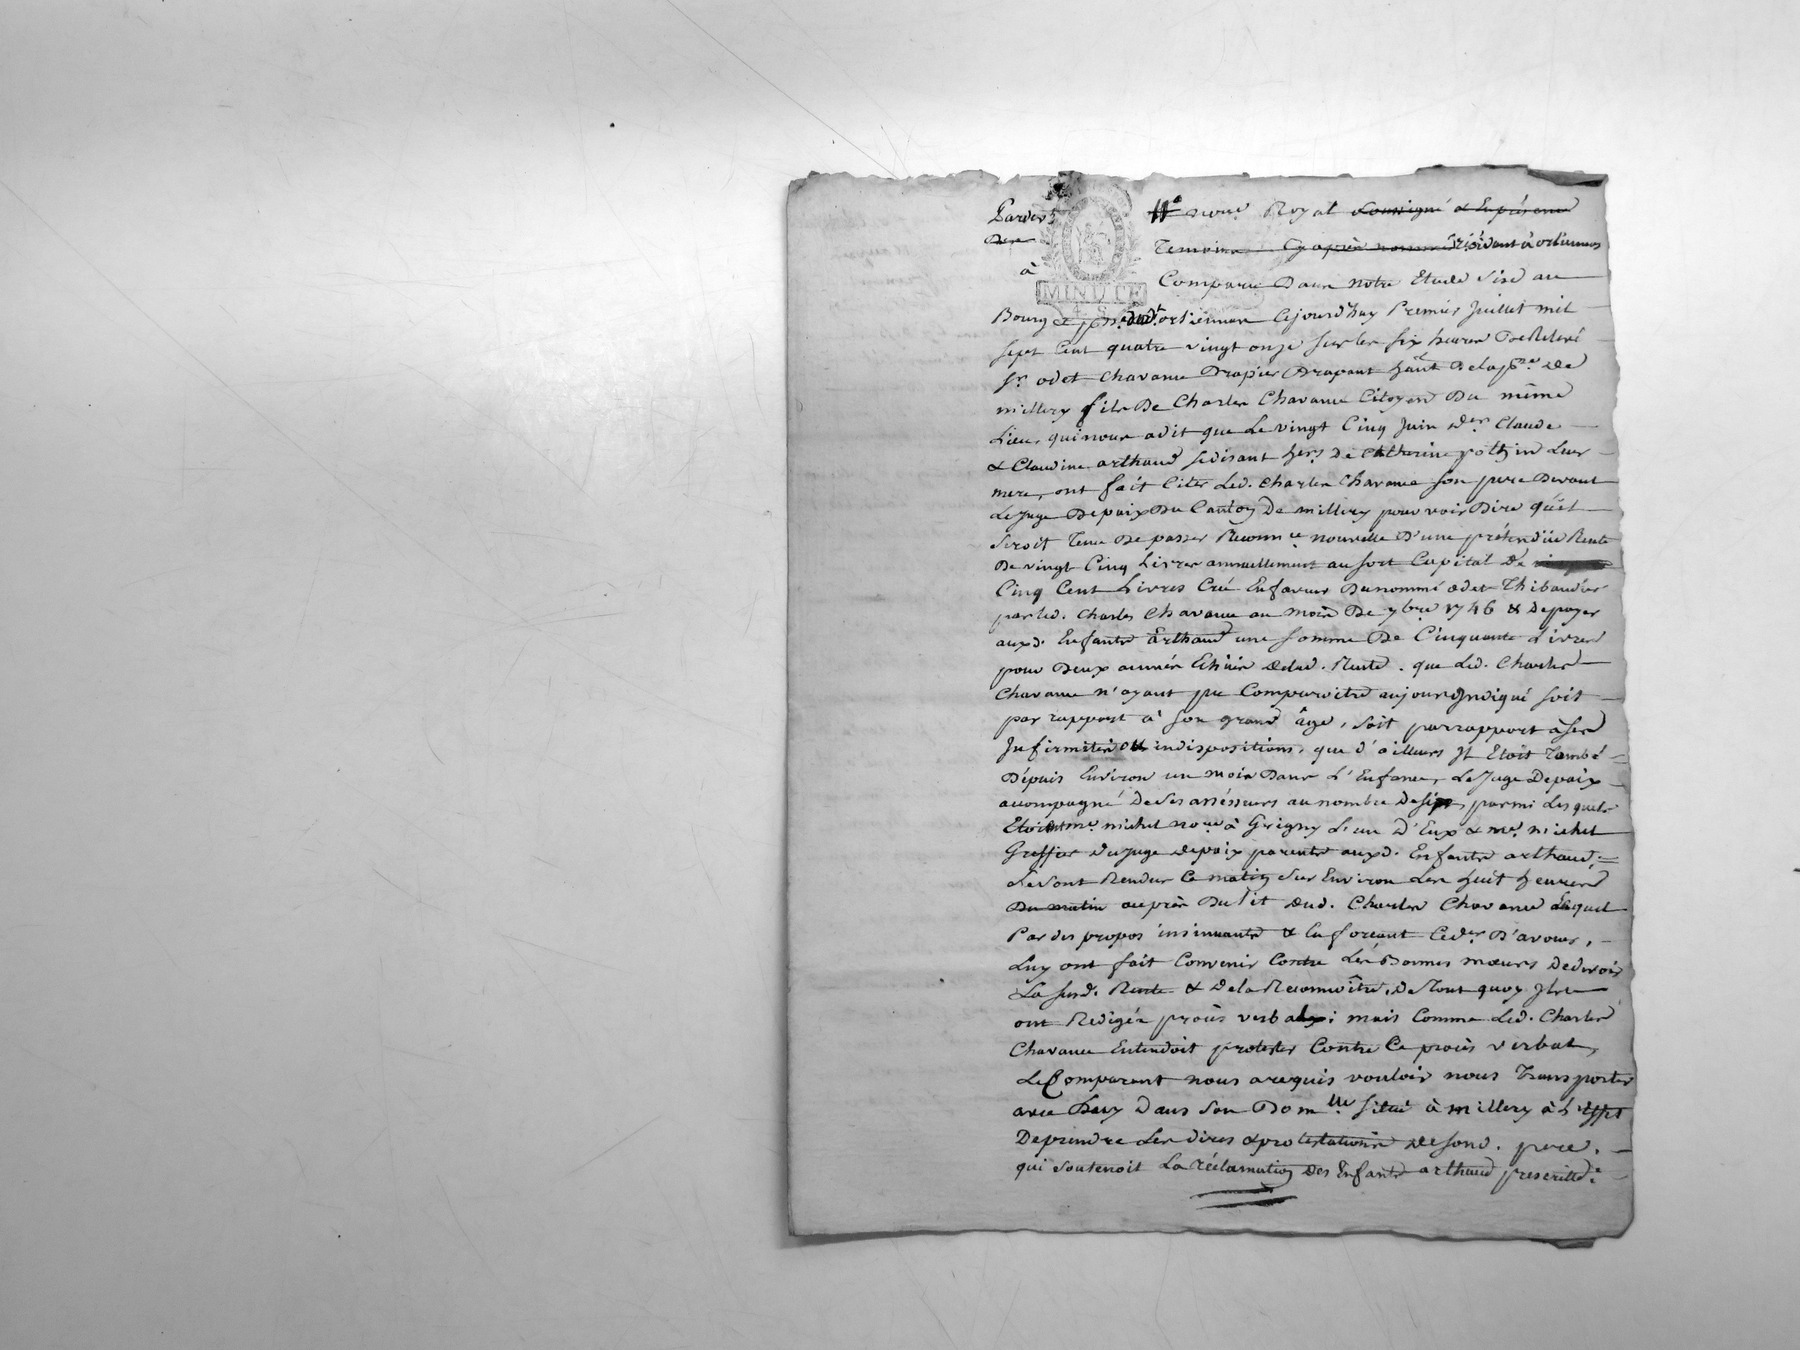 Pardevt nore Royal soussigné & En présence
des Temoins Cy après nommés résidant à orliennas
à Comparu Dans notre Etude Sise au
MINUTE
Bourg & pse dudt orliennas Cejourd'huy Premier Juillet mil
sept Cent quatre vingt onze sur les six heures De Relevé
sr odet Chavanne Drapier Drapant habt Delapsse de
millery fils De Charles Chavanne Citoyen Du même
Lieu, qui nous a dit que Le vingt Cinq Juin der Claude
& Claudine arthaud se disant hers De Catherine pothin Leur
mere, ont fait Citer Led. Charles Chavanne son pere Devant
Le Juge Depaix Du Canton De millery pour voir Dire qu'il
seroit Tenu De passer Reconnce nouvelle D'une prétendüe Rente
De vingt Cinq Livres annuellement au sort Capital De
Cinq Cent Livres Créé En faveur Du nommé odet Thibaudier
par led. Charles Chavanne au mois De 7bre 1746 & De payer
auxd. Enfants arthaud une somme De Cinquante Livres
pour Deux années Echües Delad. Rente. que Led. Charles
Chavanne n'ayant pu Comparoitre au jour Indiqué soit
par rapport à son grand âge, soit par rapport à ses
Infirmités & indispositions, que d'ailleurs Il Etoit Tombé
Dépuis Environ un mois Dans L'Enfance, Le Juge Depaix
accompagné De ses assésseurs au nombre De six, parmi Les quels
Etoient me michel nore à Grigny L'un D'Eux & me michel
Greffier Du Juge depaix parents auxd. Enfants arthaud,
se sont Rendus Ce matin sur Environ Les huit heures
Du matin auprès Du lit dud. Charles Chavanne Lequel
Par des propos insinuants & En forcant Ceder D'avouer,
Luy ont fait Convenir Contre Les Bonnes mœurs De devoir
La susd. Rente & De la Reconnoître, De Tout quoy Ils
ont Redigés procès verbal; mais Comme Led. Charles
Chavanne Entendoit protester Contre Ce procès verbal,
Le Comparant nous a requis vouloir nous Transporter
avec Luy Dans son Domlle situé à millery à L'effet
De prendre Les dires & protestations de sond. pere,
qui soutenoit La réclamation Des Enfants arthaud prescritte.